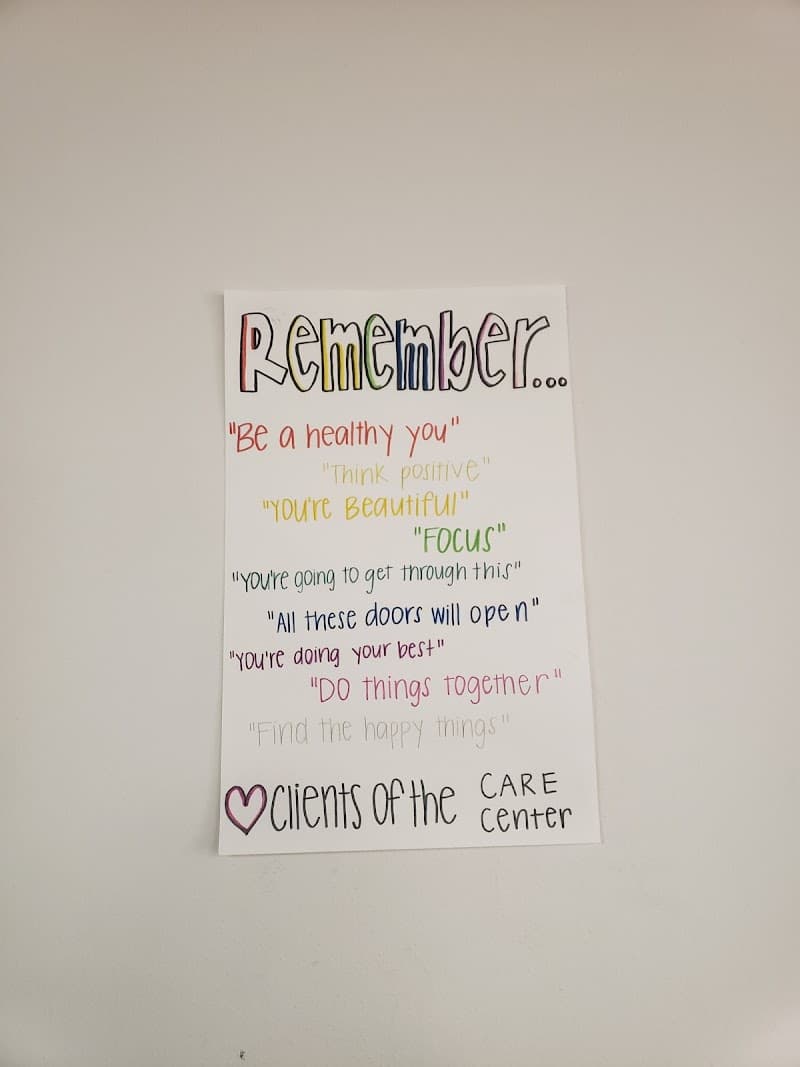 Remember...
"Be a healthy you"
"Think positive"
"You're Beautiful"
"FOCUS"
"You're going to get through this"
"All these doors will open"
"You're doing your best"
"DO things together"
"Find the happy things"
Clients of the CARE Center